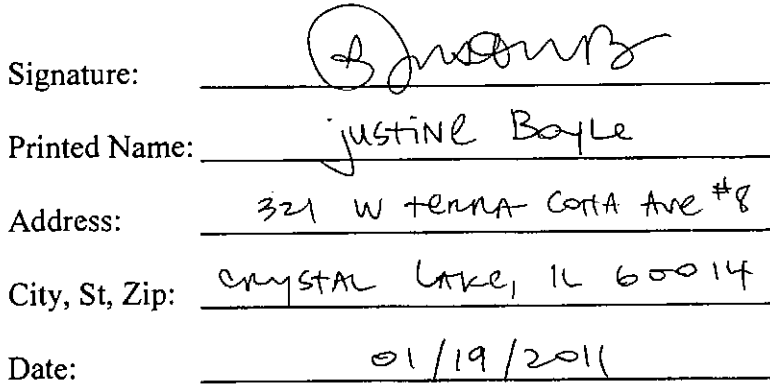 Signature:
Printed Name: justine Boyle
Address: 321 W terra Cotta Ave #8
City, St, Zip: Crystal Lake, IL 60014
Date: 01/19/2011